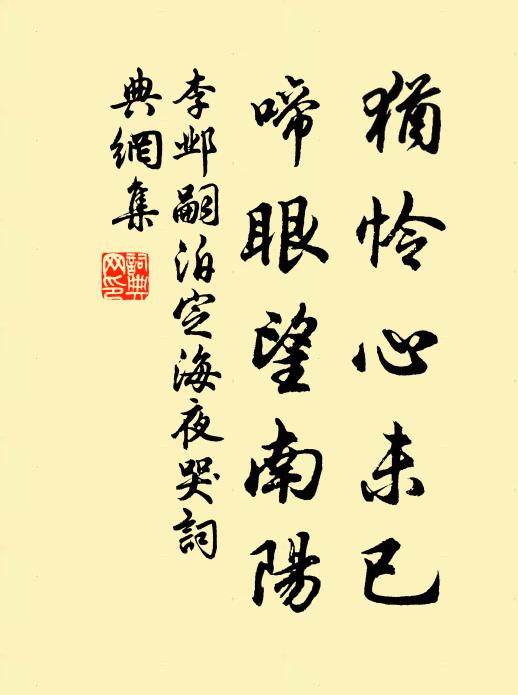 猶怜心未已
啼眼望南陽
李邺嗣泊定海夜哭詞
典網集
詞典網印